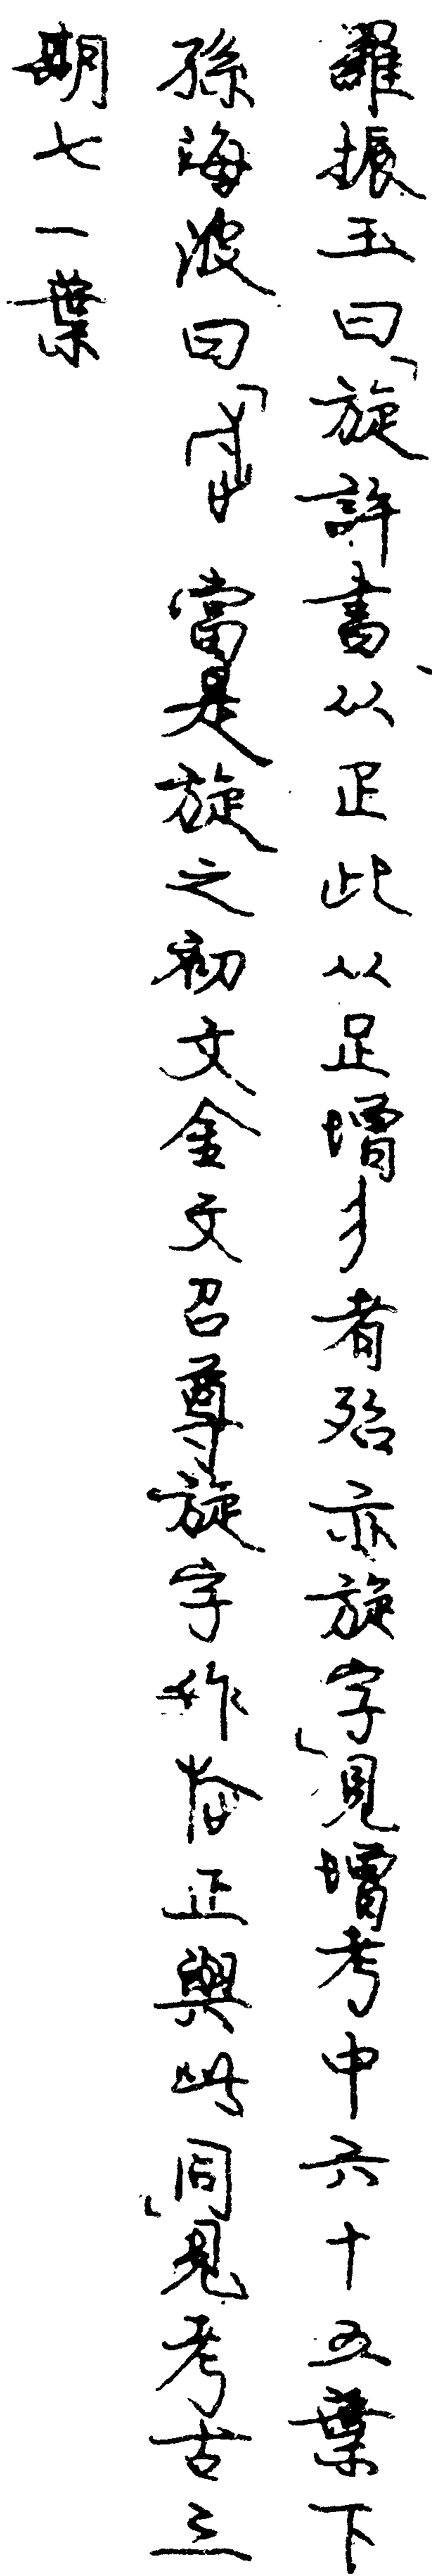 羅振玉曰「旋許書从疋此从足增彳者殆亦旋字」見增考中六十五葉下
孫海波曰「當是旋之初文金文召尊旋字作正與此同」見考古三
期七一葉